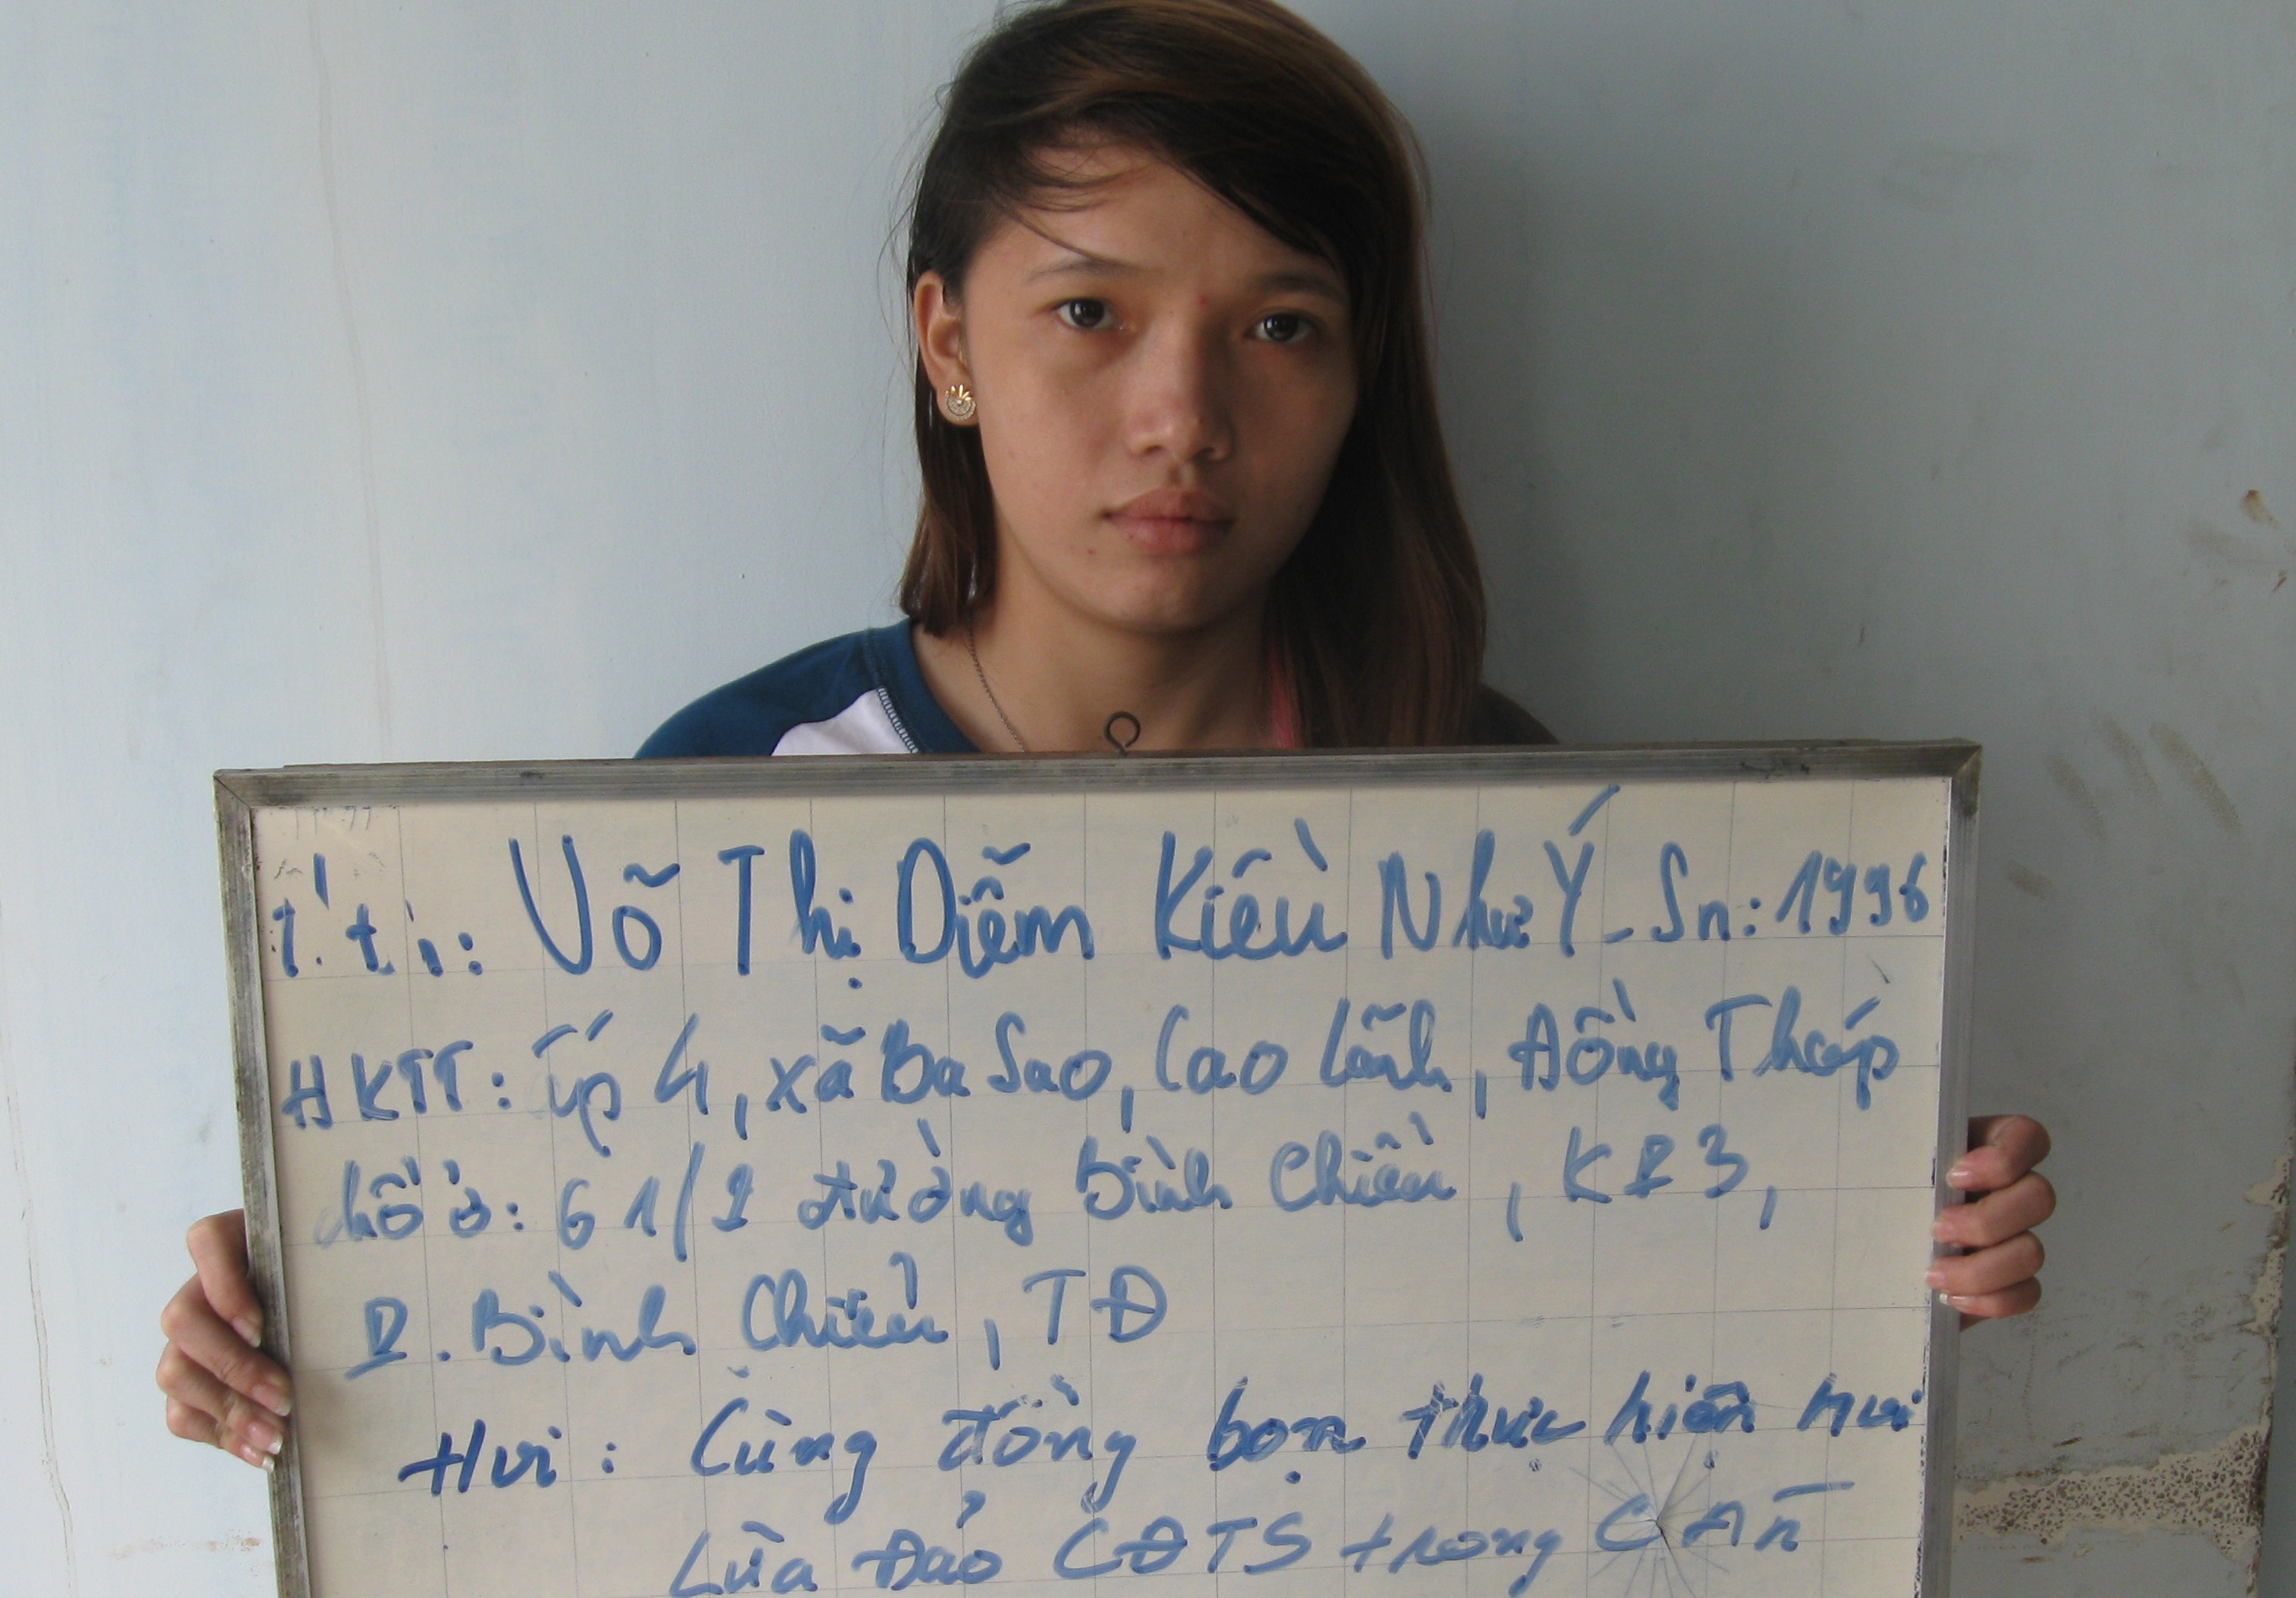 Võ Thị Diễm Kiều Như Ý - Sn: 1996
HKTT: ấp 4, xã Ba Sao, Cao Lãnh, Đồng Tháp
chỗ ở: 61/2 đường Bình Chiểu, KP3,
P. Bình Chiểu, TĐ
Hvi: Cùng đồng bọn thực hiện hvi
Lừa Đảo CĐTS trong